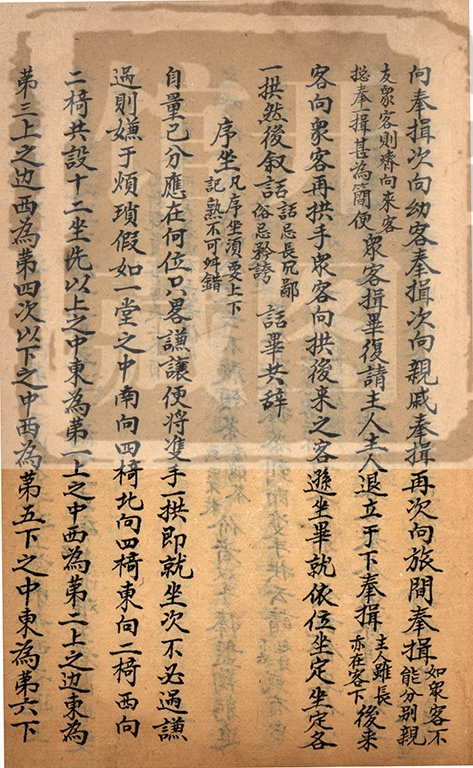 向奉揖次向幼客奉揖次向親戚奉揖再次向旅間奉揖如眾客不能分別親
友眾客則齊向來客揔奉一揖甚為簡便眾客揖畢復請主人主人退立于下奉揖主人雖長亦在客下後来
客向眾客再拱手眾客向拱後来之客遜坐畢就依位坐定坐定各
一拱然後叙話話忌長冗鄙俗忌矜誇話畢共辞
序坐凡序坐須要上下記熟不可舛錯
自量己分應在何位只畧謙讓使將雙手一拱即就坐次不必過謙
過則嫌于煩瑣假如一堂之中南向四椅北向四椅東向二椅西向
二椅共設十二坐先以上之中東為第一上之中西為第二上之边東為
第三上之边西為第四次以下之中西為第五下之中東為第六下